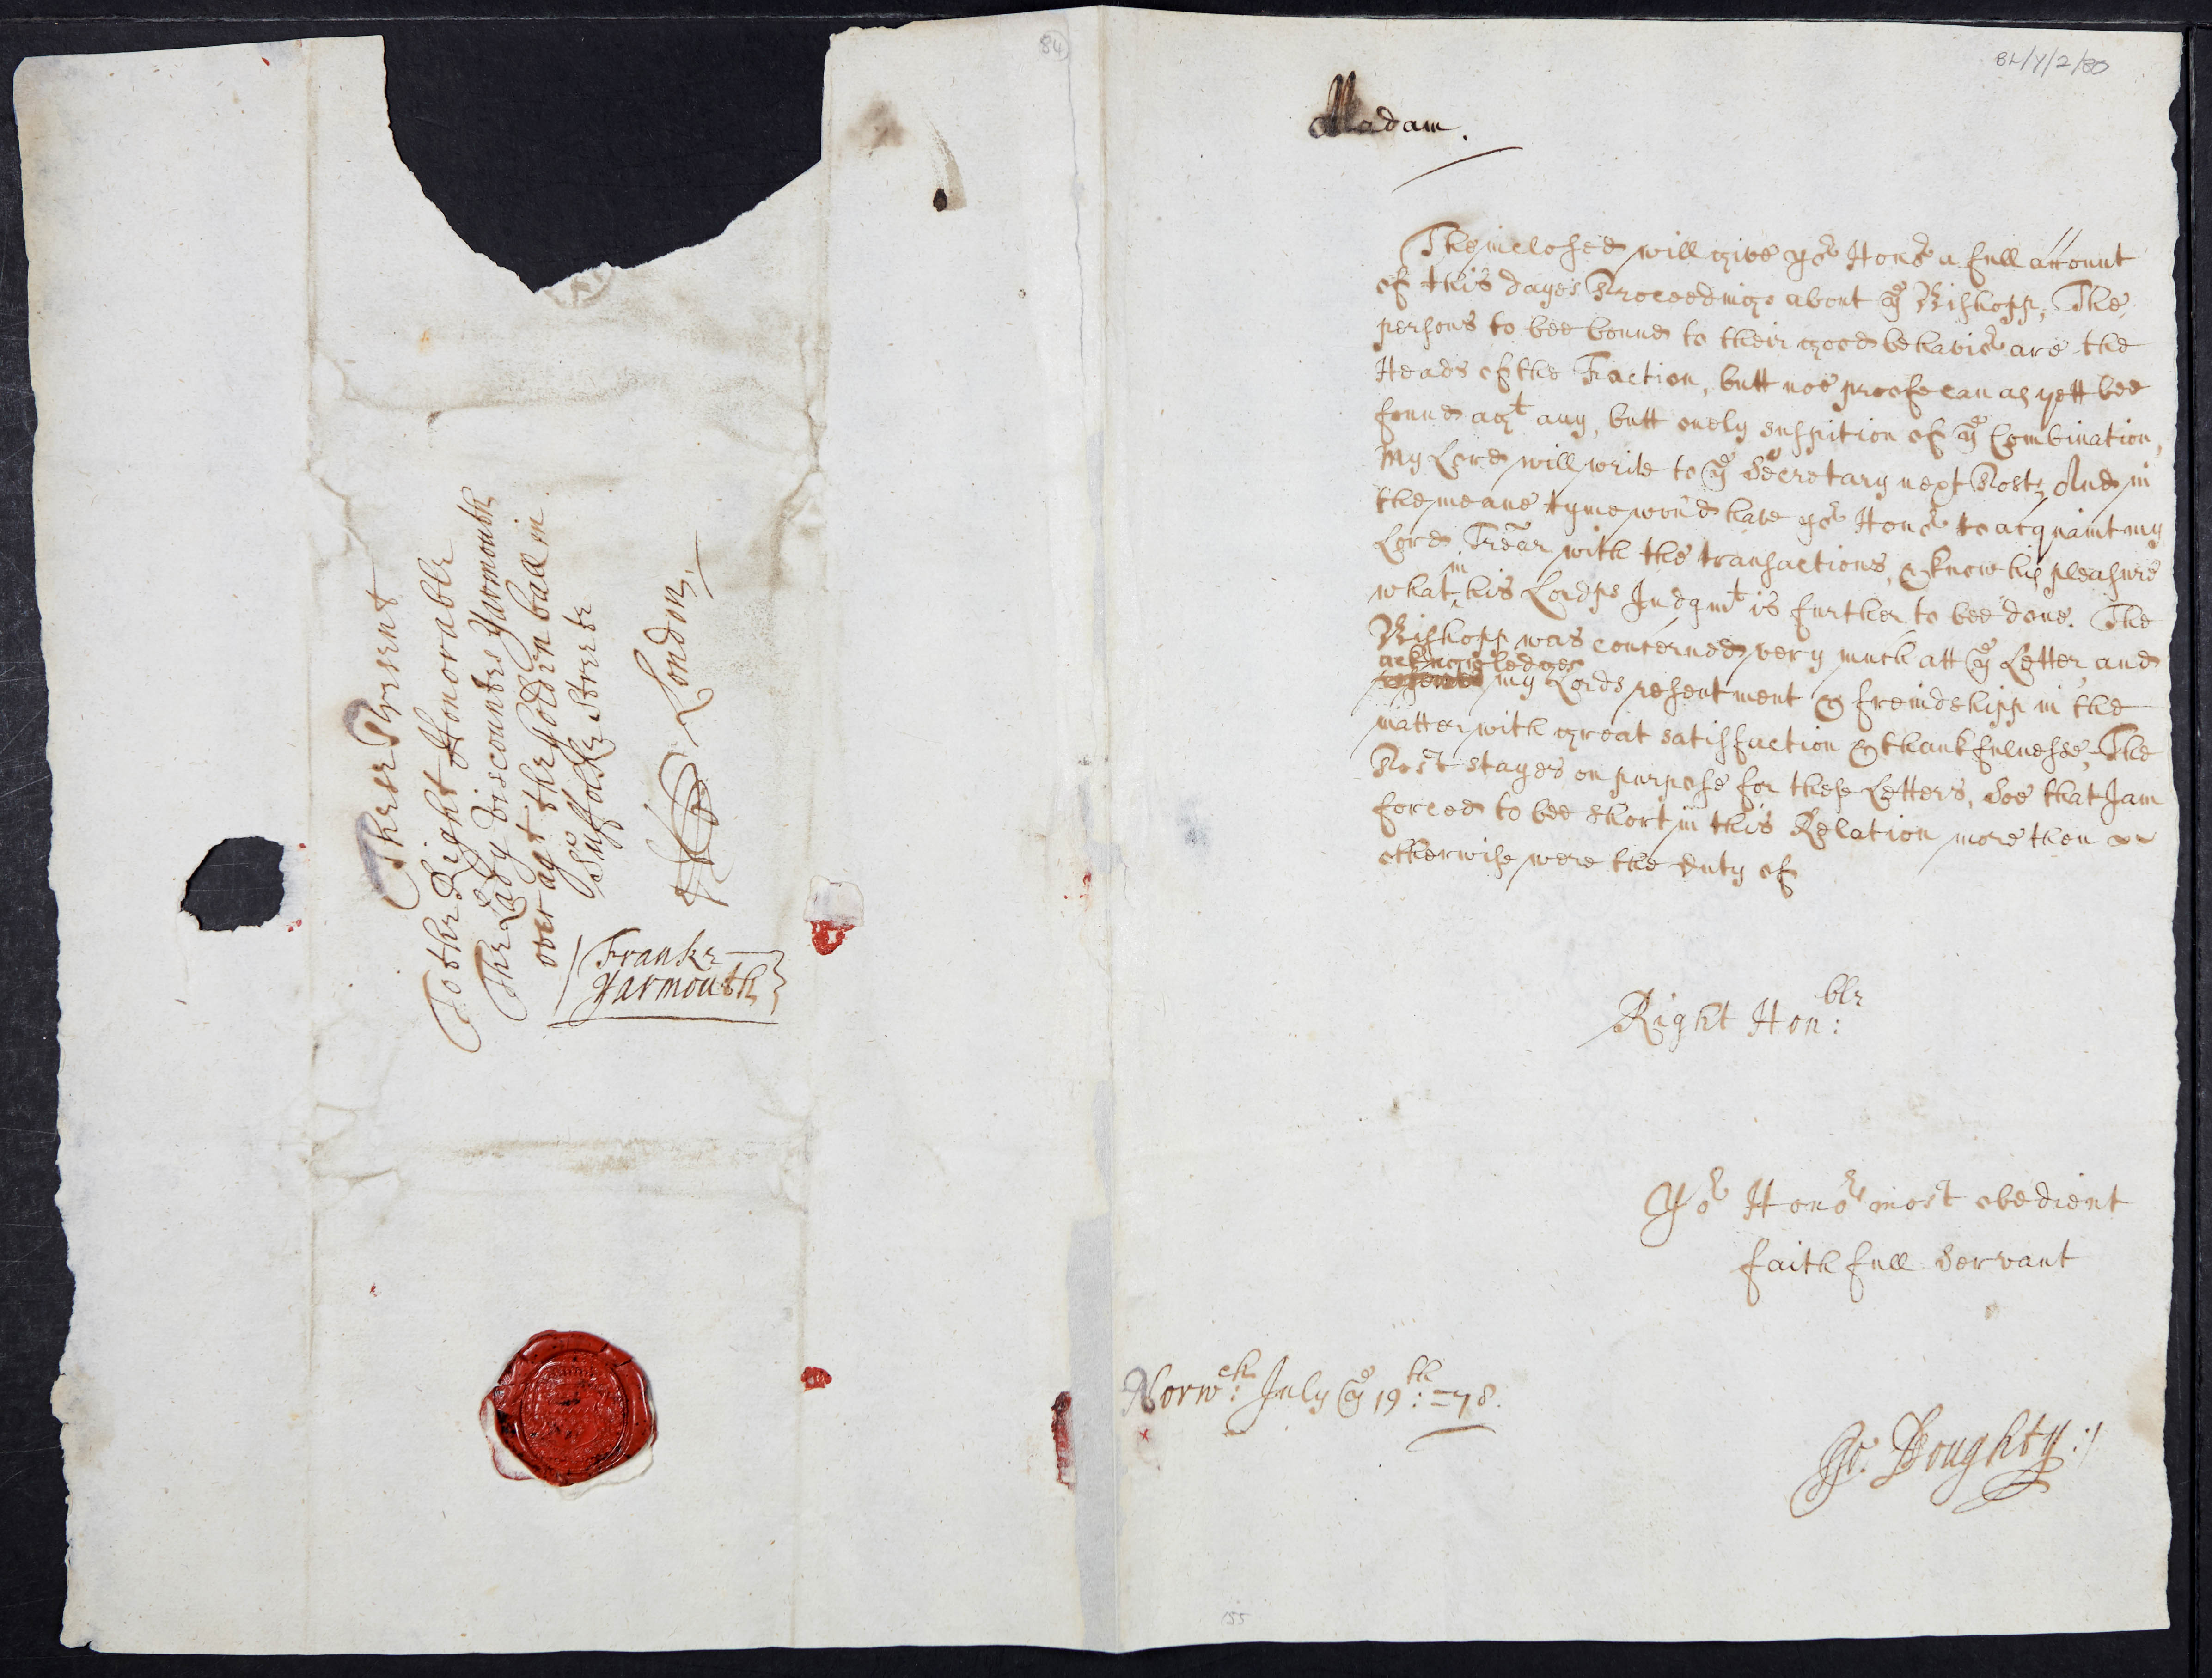 84
BL/Y/2/80
These Present
To the Right Honorable
The Lady Viscountes Yarmouth
over agt the golden ball in
Suffolke Streete
London,
Franke
Yarmouth
Madam.
The inclosed will give yor Honor a full account
of this dayes Proceedings about ye Bishopp, The
persons to bee bound to their good behavior are the
Heads of the Faction, butt noe proofe can as yett bee
found agt any, butt onely suspition of ye Combination,
My Lord will write to ye Secretary next Post, And in
the meane tyme wou'd have yor Honor to acquaint my
Lord Trear with the transactions, & know his pleasure
what in his Lordps Judgmt is further to bee done. The
Bishopp was concerned very much att ye Letter, and
acknowledges my Lords resentment & freindshipp in the
matter with great satisfaction & thankfulnesse, The
Post stayes on purpose for these Letters, Soe that I am
forced to bee short in this Relation more then
otherwise were the duty of
Right Honble:
Yor Honors most obedient
faithfull Servant
Norwch: July ye 19th: =78.
Jo: Doughty:/
155